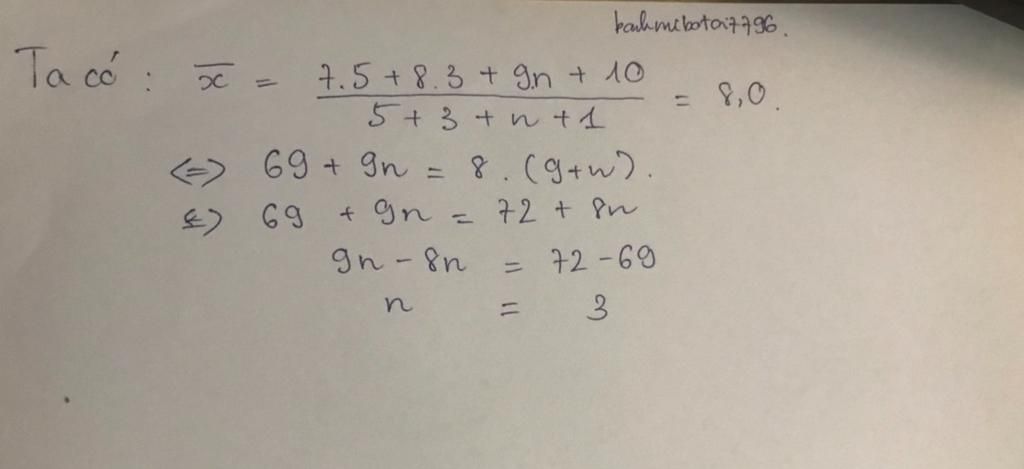 banhmibotoi7796.
Ta có : x̄ = (7.5 + 8.3 + 9.n + 10) / (5 + 3 + n + 1) = 8,0.
<=> 69 + 9n = 8 . (9+n).
<=> 69 + 9n = 72 + 8n
9n - 8n = 72 - 69
n = 3